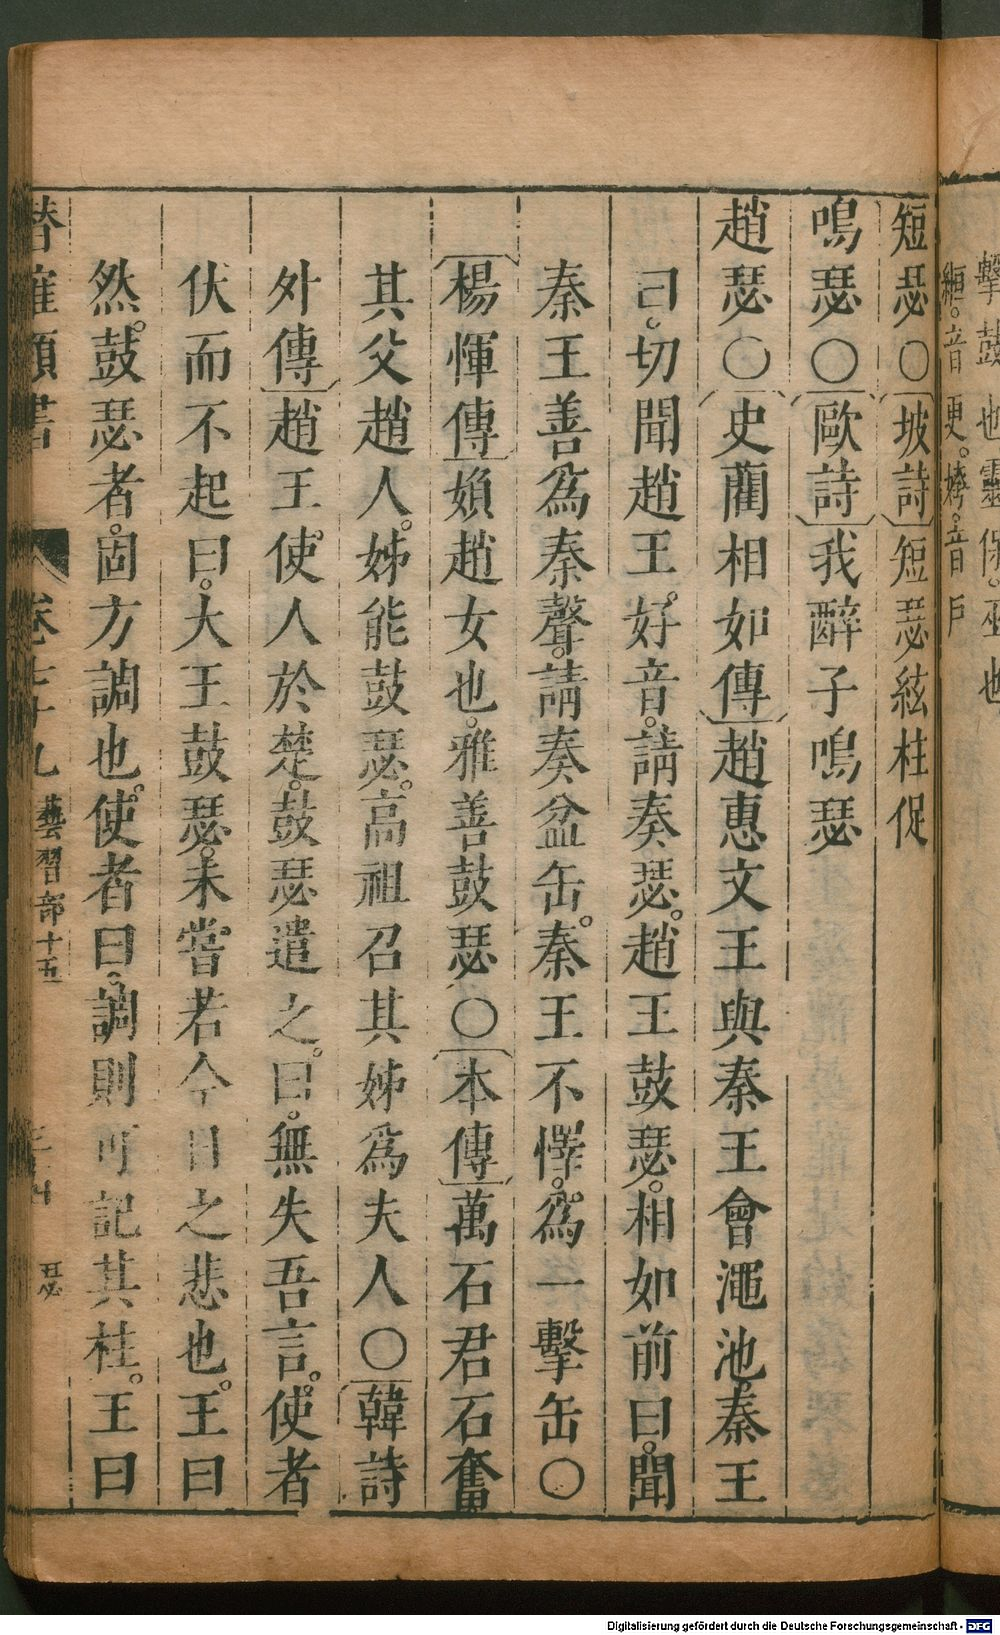 擊鼓也靈保。巫也
緪。音更。嫮。音戶
短瑟〇坡詩短瑟絃柱促
鳴瑟〇歐詩我醉子鳴瑟
趙瑟〇史藺相如傳趙惠文王與秦王會澠池。秦王
曰。切聞趙王。好音。請奏瑟。趙王鼓瑟。相如前曰。聞
秦王善爲秦聲。請奏盆缶。秦王不懌。爲一擊缶〇
楊惲傳媍趙女也。雅善鼓瑟〇本傳萬石君石奮
其父趙人。姊能鼓瑟。高祖召其姊爲夫人〇韓詩
外傳趙王。使人於楚。鼓瑟遣之。曰。無失吾言。使者
伏而不起曰。大王鼓瑟。未嘗若今日之悲也。王曰
然。鼓瑟者。固方調也。使者曰。調則可記其柱。王曰
卷七十九 藝習部十五 瑟
Digitalisierung gefördert durch die Deutsche Forschungsgemeinschaft - DFG